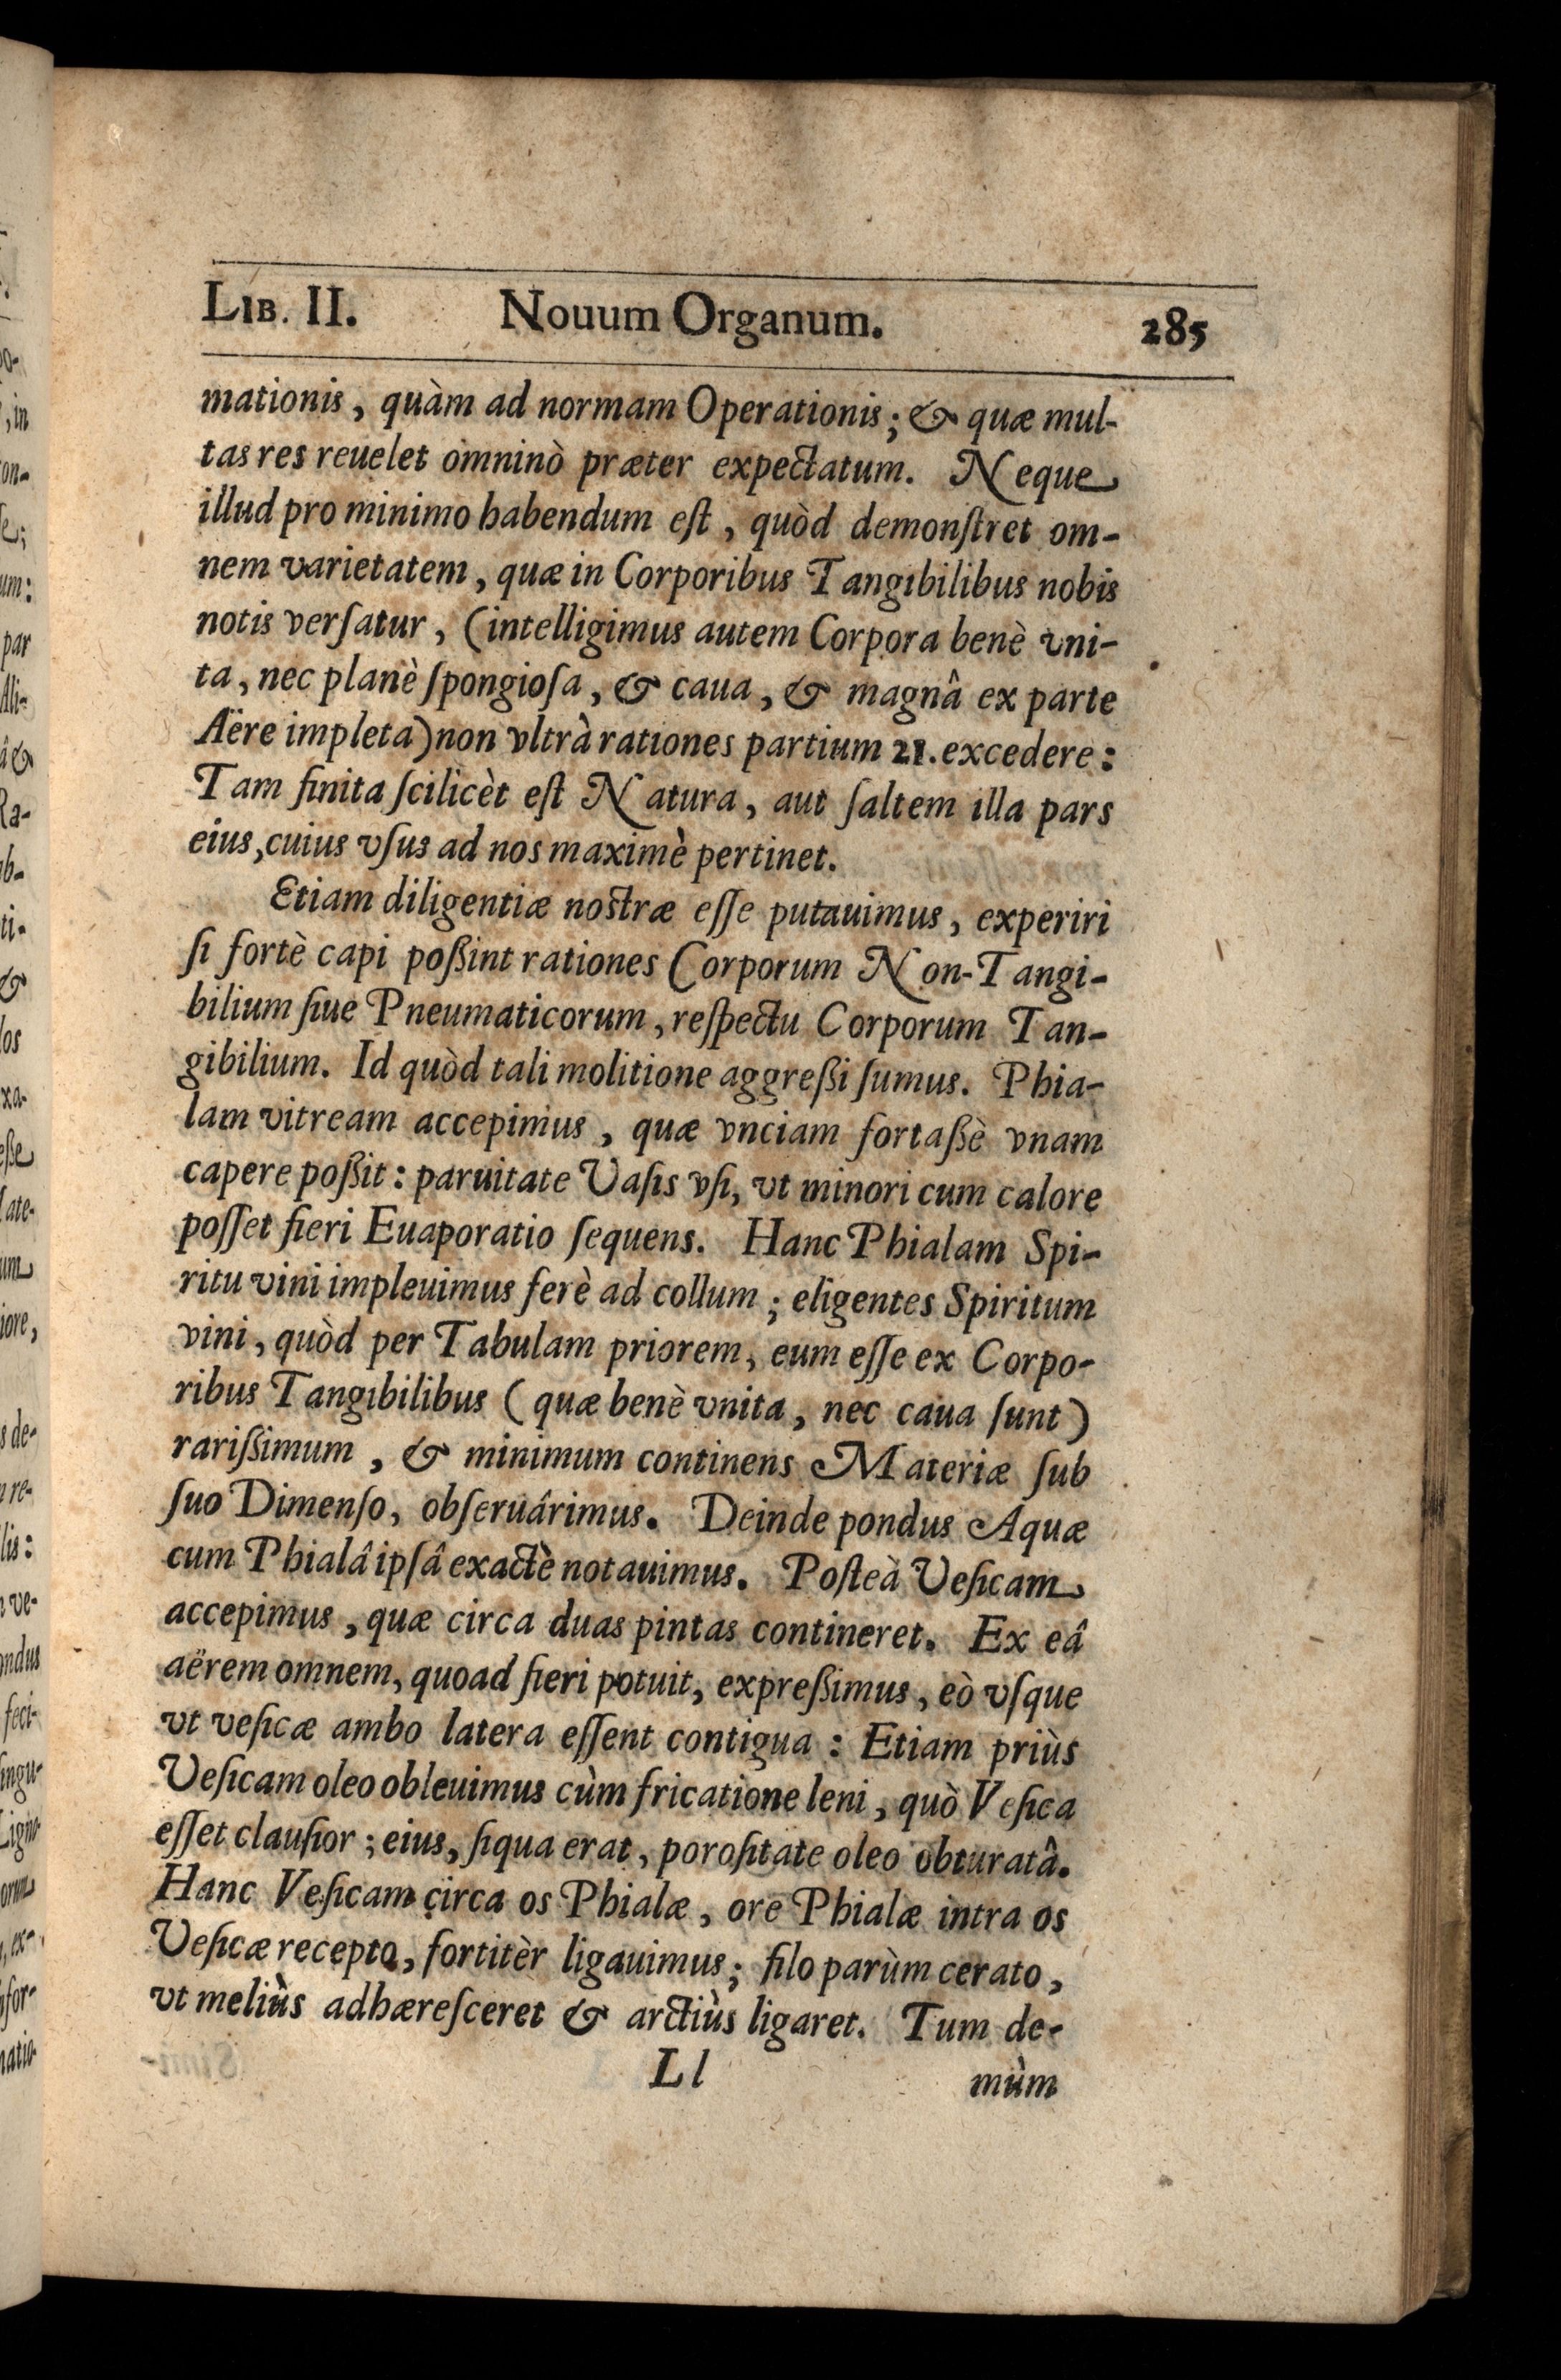 LIB. II. Nouum Organum. 285
mationis, quàm ad normam Operationis; & quæ mul-
tas res reuelet omninò præter expectatum. Neque
illud pro minimo habendum eſt, quòd demonſtret om-
nem varietatem, quæ in Corporibus Tangibilibus nobis
notis verſatur, (intelligimus autem Corpora benè vni-
ta, nec planè ſpongioſa, & caua, & magnâ ex parte
Aëre impleta) non vltrà rationes partium 21. excedere:
Tam finita ſcilicèt eſt Natura, aut ſaltem illa pars
eius, cuius vſus ad nos maximè pertinet.
Etiam diligentiæ noſtræ eſſe putauimus, experiri
ſi fortè capi poßint rationes Corporum Non-Tangi-
bilium ſiue Pneumaticorum, reſpectu Corporum Tan-
gibilium. Id quòd tali molitione aggreßi ſumus. Phia-
lam vitream accepimus, quæ vnciam fortaßè vnam
capere poßit: paruitate Vaſis vſi, vt minori cum calore
poſſet fieri Euaporatio ſequens. Hanc Phialam Spi-
ritu vini impleuimus ferè ad collum; eligentes Spiritum
vini, quòd per Tabulam priorem, eum eſſe ex Corpo-
ribus Tangibilibus (quæ benè vnita, nec caua ſunt)
rarißimum, & minimum continens Materiæ ſub
ſuo Dimenſo, obſeruârimus. Deinde pondus Aquæ
cum Phialâ ipſâ exactè notauimus. Poſteà Veſicam
accepimus, quæ circa duas pintas contineret. Ex eâ
aërem omnem, quoad fieri potuit, expreßimus, eò vſque
vt veſicæ ambo latera eſſent contigua: Etiam priùs
Veſicam oleo obleuimus cùm fricatione leni, quò Veſica
eſſet clauſior; eius, ſiqua erat, poroſitate oleo obturatâ.
Hanc Veſicam circa os Phialæ, ore Phialæ intra os
Veſicæ recepto, fortitèr ligauimus; filo parùm cerato,
vt meliùs adhæreſceret & arctiùs ligaret. Tum de-
Ll mùm